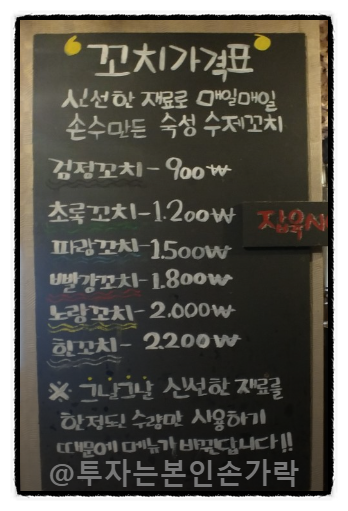 꼬치가격표
신선한 재료로 매일매일
손수만든 숙성 수제꼬치
검정꼬치 - 900₩
초록꼬치 - 1.200₩
파랑꼬치 - 1.500₩
빨강꼬치 - 1.800₩
노랑꼬치 - 2.000₩
흰꼬치 - 2.200₩
※ 그날그날 신선한 재료를
한정된 수량만 사용하기
때문에 메뉴가 바뀐답니다!!
@투자는본인손가락